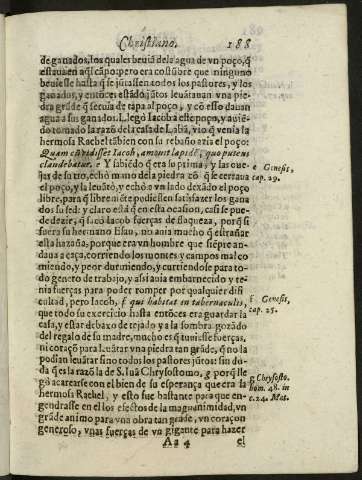 Christiano. 188
de ganados, los quales beuiã de la agua de vn poço, q̃
estaua en aq̃l cãpo: pero era costũbre que ninguno
beuiesse hasta q̃ se jũtassen todos los pastores, y los
ganados, y entonces todos jũtos leuãtauan vna pie-
dra grãde q̃ seruia de tapa al poço, y cõ esso dauan
agua a sus ganados. Llegò Iacob a este poço, y auiẽ-
do tomado la razõ de la casa de Labã, vio q̃ venia la
hermosa Rachel tãbien con su rebaño azia el poço:
Quam cũ vidisset Iacob, amouit lapidẽ, quo puteus
claudebatur. e Y sabiẽdo q̃ era su prima, y las oue-
jas de su tio, echò mano de la piedra cõ q̃ se cerraua
el poço, y la leuãtò, y echò a vn lado dexãdo el poço
libre, para q̃ libremẽte pudiessen satisfazer los gana
dos su sed: y claro està q̃ en esta ocasion, casi se pue-
de dezir, q̃ sacò Iacob fuerças de flaqueza, porq̃ si
fuera su hermano Esau, no auia mucho q̃ estrañar
esta hazaña, porque era vn hombre que siẽpre an-
daua a caça, corriendo los montes y campos mal co
miendo, y peor durmiendo, y curtiendose para to-
do genero de trabajo, y assi auia embarnecido y te-
nia fuerças para poder romper por qualquier difi
cultad, pero Iacob, f qui habitat in tabernaculis,
que todo su exercicio hasta entõces era guardar la
casa, y estar debaxo de tejado y a la sombra gozado
del regalo de su madre, mucho es q̃ tuuiesse fuerças,
ni coraçõ para leuãtar vna piedra tan grãde, q̃ no la
podian leuãtar sino todos los pastores jũtos: sin du-
da q̃ es la razõ la de S. Iuã Chrysostomo, g porq̃ lle
gò a carearse con el bien de su esperança que era la
hermosa Rachel, y esto fue bastante para que en-
gendrasse en el los efectos de la magnanimidad, vn
grãde animo para vna obra tan grãde, vn coraçon
generoso, vnas fuerças de vn gigante para hazer
Aa 4 el
e Genesis,
cap. 29.
f Genesis,
cap. 25.
g Chrysosto.
hom. 48. in
c. 24. Mat.